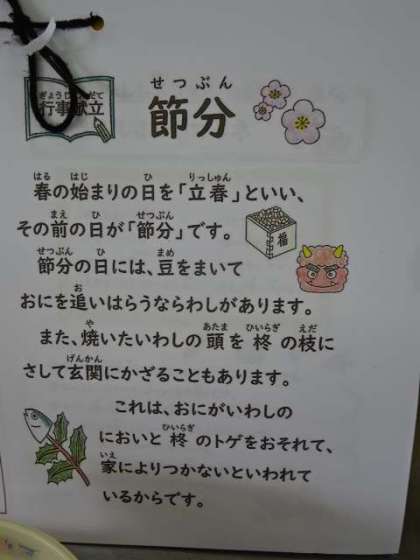 行事献立
節分
春の始まりの日を「立春」といい、
その前の日が「節分」です。
節分の日には、豆をまいて
おにを追いはらうならわしがあります。
また、焼いたいわしの頭を柊の枝に
さして玄関にかざることもあります。
これは、おにがいわしの
においと柊のトゲをおそれて、
家によりつかないといわれて
いるからです。
福